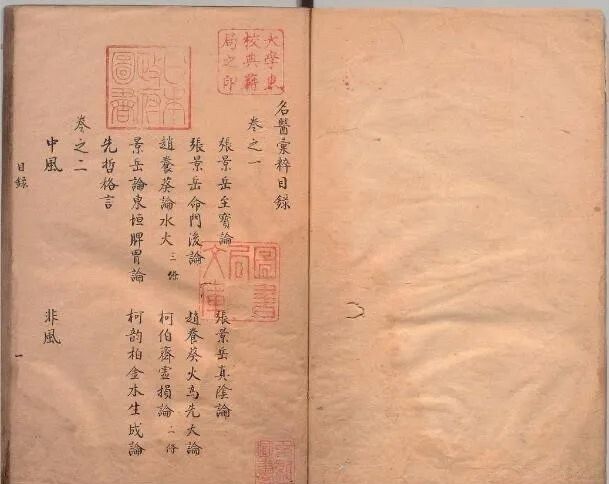 名醫彙粹目錄
卷之一
張景岳至寶論 張景岳真陰論
張景岳命門後論 趙養葵火為先天論
趙養葵論水火 三條 柯伯齊虛損論 二條
景岳論東垣脾胃論 柯韵柏金水生成論
先哲格言
卷之二
中風 非風
目錄 一
大學東校典籍局之印
日本政府圖書
圖書局文庫